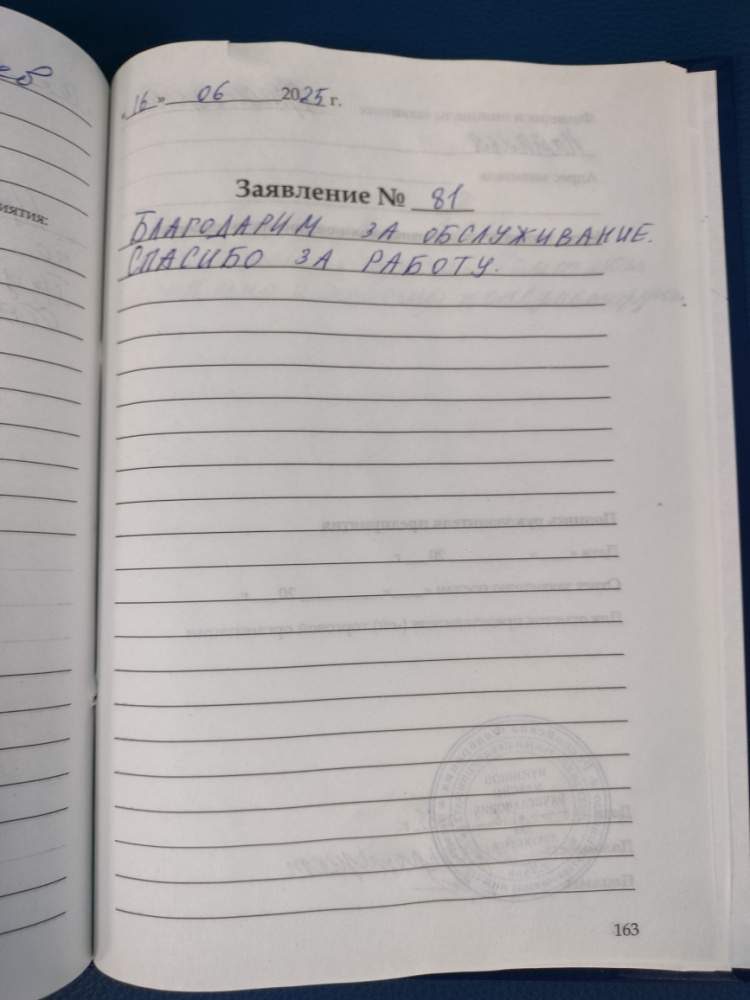 ев
иятия:
«16» 06 2025 г.
Заявление № 81
БЛАГОДАРИМ ЗА ОБСЛУЖИВАНИЕ.
СПАСИБО ЗА РАБОТУ.
163